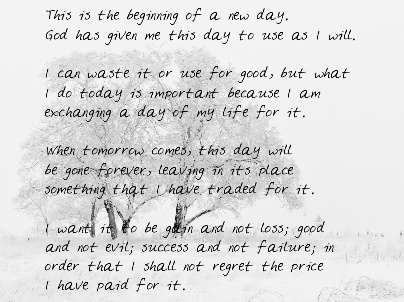 This is the beginning of a new day.
God has given me this day to use as I will.
I can waste it or use for good, but what
I do today is important because I am
exchanging a day of my life for it.
When tomorrow comes, this day will
be gone forever, leaving in its place
something that I have traded for it.
I want it to be gain and not loss; good
and not evil; success and not failure; in
order that I shall not regret the price
I have paid for it.